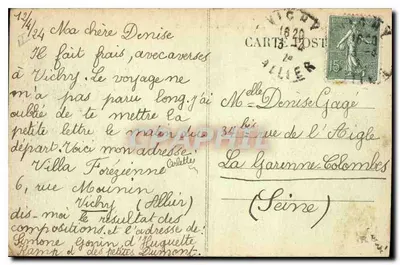 12/4/24 Ma chère Denise
Il fait frais, avec averses
à Vichy. Le voyage ne
m'a pas paru long. j'ai
oublié de te mettre la
petite lettre le matin du
départ. Voici mon adresse:
Villa Forézienne
Colette
6, rue Mounin
Vichy (Allier)
dis-moi le résultat des
compositions. et l'adresse de:
Simone Gonin, d'Huguette
et des petites Dumont.
CARTE POST
VICHY
18 20
13-4
ALLIER
Melle Denise Gagé
31 bis rue de l'Aigle
La Garenne-Colombes
(Seine)